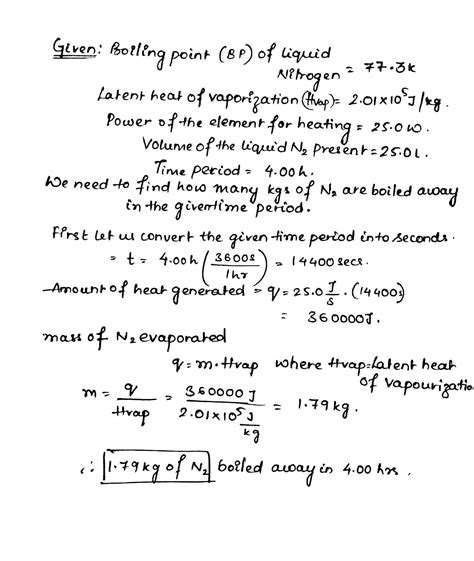 Given: Boiling point (BP) of liquid
Nitrogen = 77.3k
Latent heat of vaporization (Hvap) = 2.01×10⁵J/kg.
Power of the element for heating = 25.0 W.
Volume of the liquid N₂ present = 25.0L.
Time period = 4.00h.
We need to find how many kgs of N₂ are boiled away
in the given time period.
First let us convert the given time period into seconds.
= t = 4.00h (3600s / 1hr) = 14400 secs.
Amount of heat generated = q = 25.0 J/s . (14400s)
= 360000J.
mass of N₂ evaporated
q = m.Hvap where Hvap = latent heat
of vapourizatio
m = q / Hvap = 360000 J / 2.01×10⁵ J/kg = 1.79 kg.
∴ 1.79 kg of N₂ boiled away in 4.00 hrs.